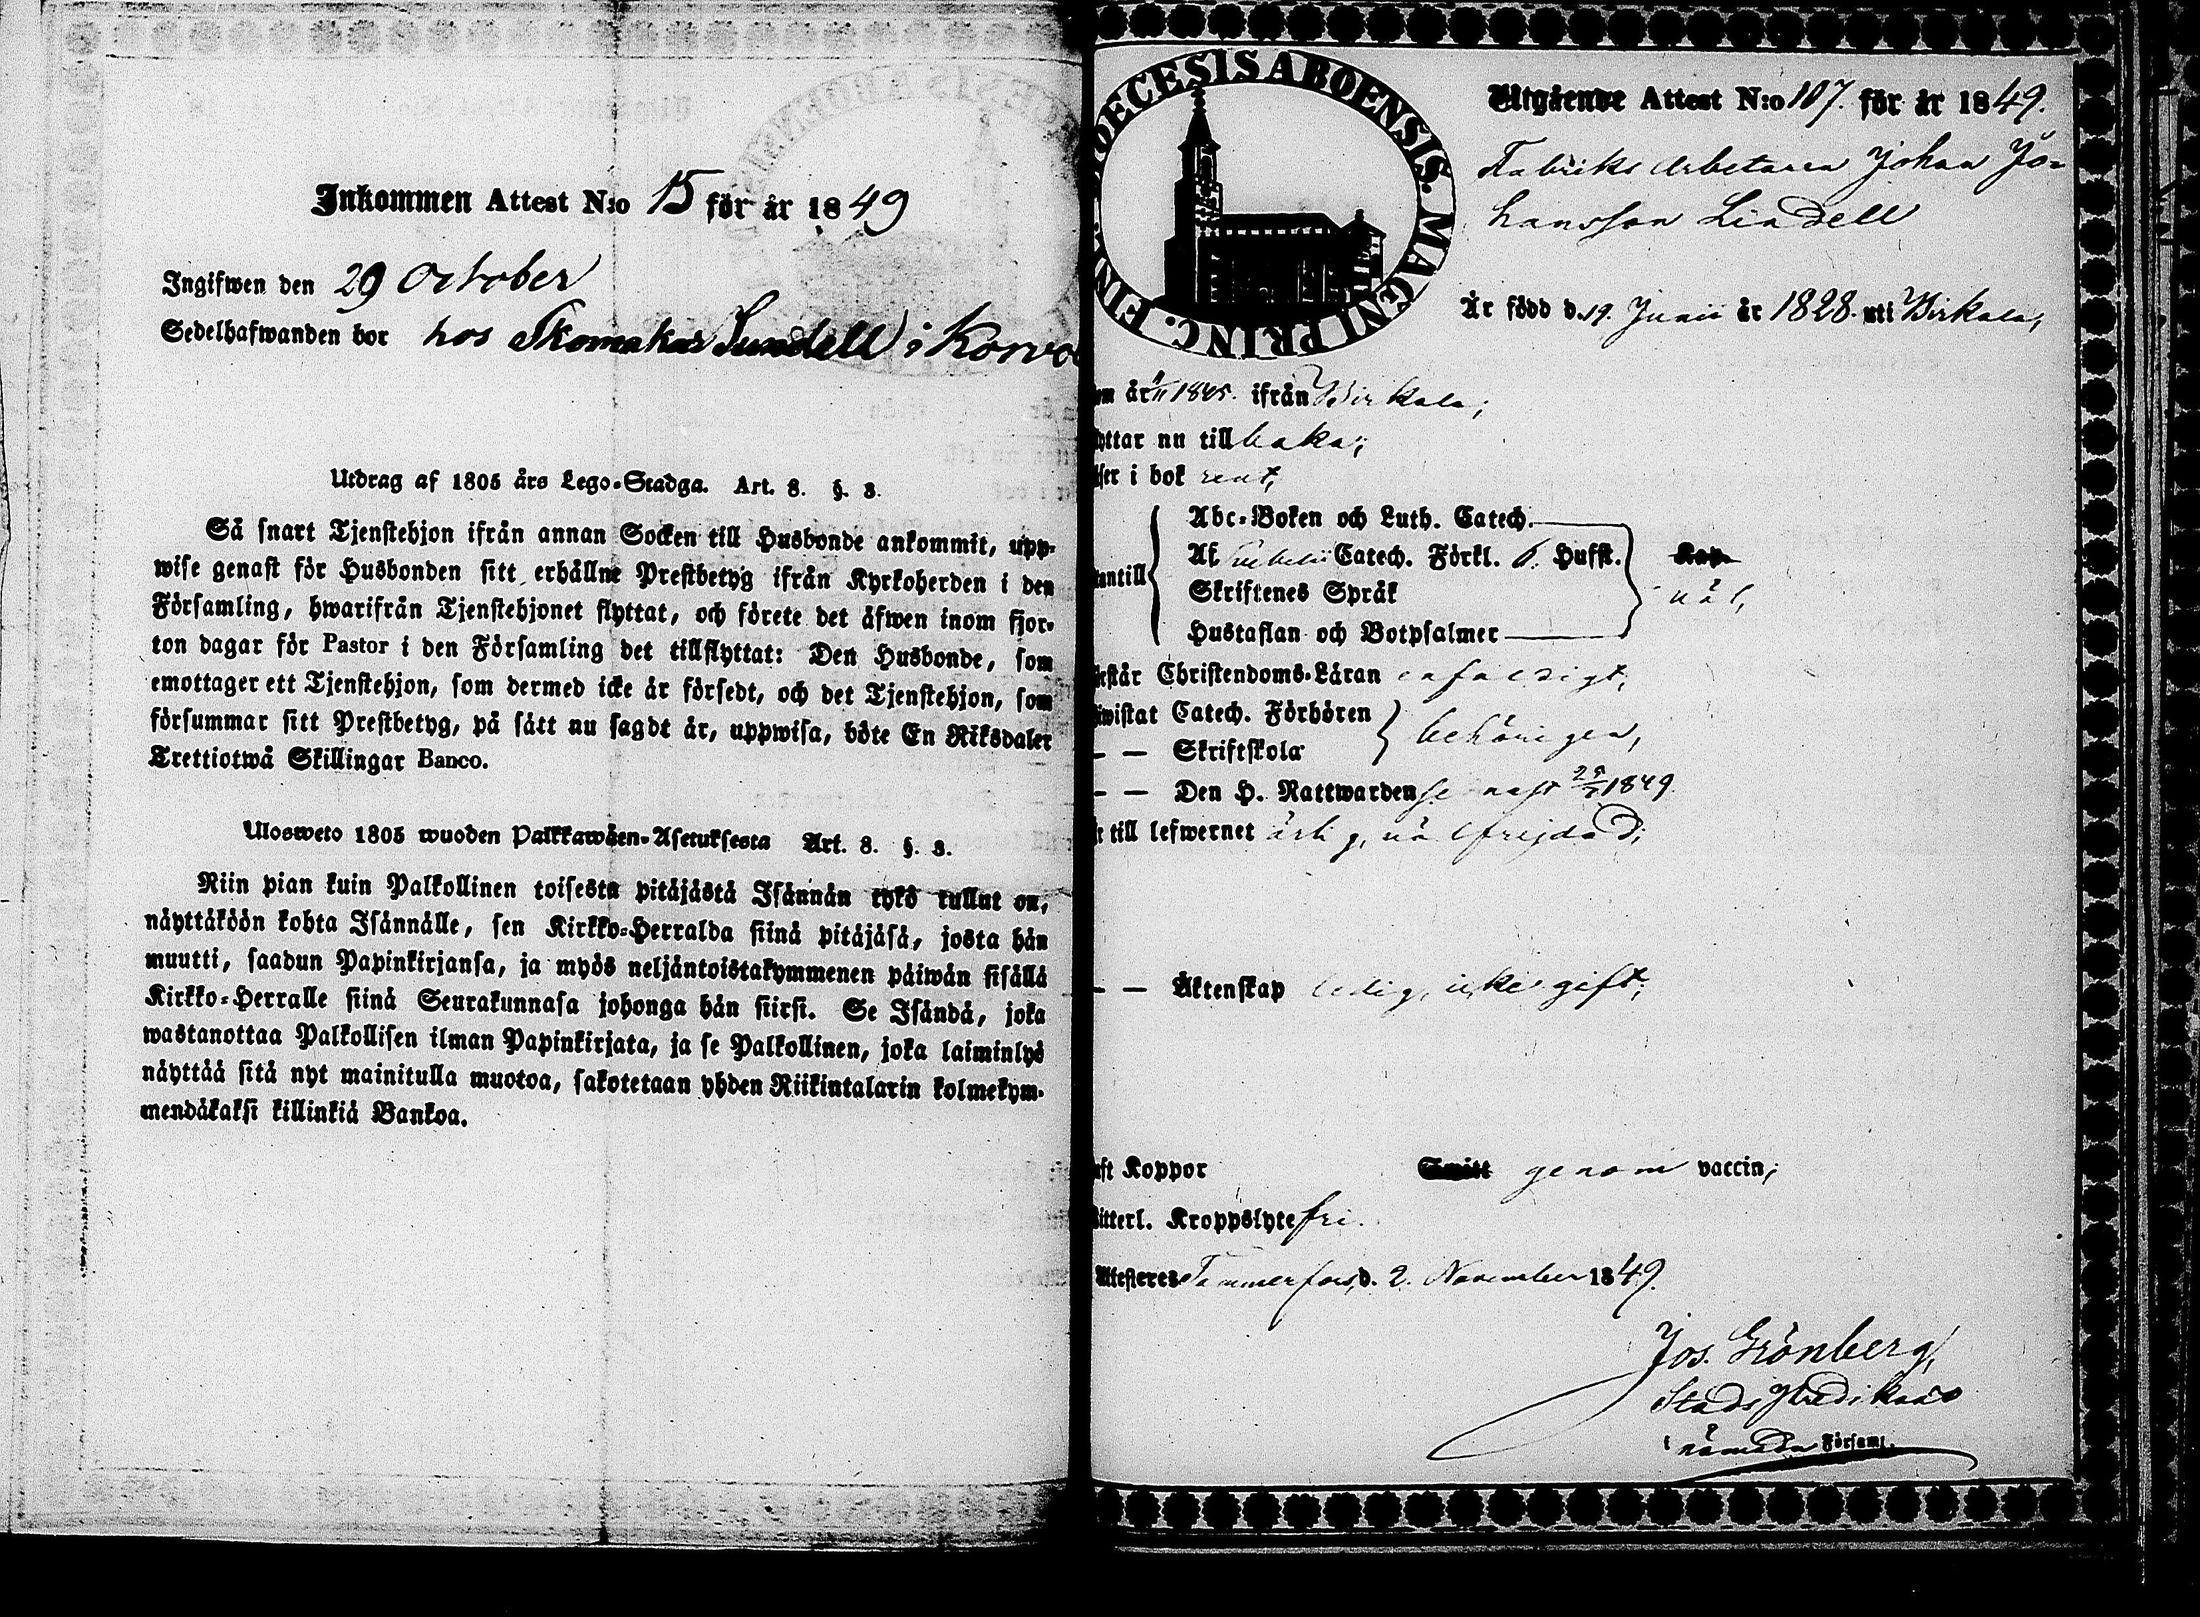 Inkommen Attest N:o 15 för år 1849
Ingifwen den 29 October
Sedelhafwanden bor hos Skomakar Sundell i
Utdrag af 1805 års Lego-Stadga. Art. 8. §. 3.
Så snart Tjenstehjon ifrån annan Socken till Husbonde ankommit, upp-
wise genast för Husbonden sitt erhållne Prestbetyg ifrån Kyrkoherden i den
Församling, hwarifrån Tjenstehjonet flyttat, och förete det äfwen inom fjor-
ton dagar för Pastor i den Församling det tillflyttat: Den Husbonde, som
emottager ett Tjenstehjon, som dermed icke är försedt, och det Tjenstehjon, som
försummar sitt Prestbetyg, på sätt nu sagdt är, uppwisa, böte En Riksdaler
Trettiotwå Skillingar Banco.
Ulosweto 1805 wuoden Palkkawäen-Asetuksesta Art. 8. §. 3.
Niin pian kuin Palkollinen toisesta pitäjästä Isännän tykö tullut on,
näyttäköön kohta Isännälle, sen Kirkko-Herralda siinä pitäjäsä, josta hän
muutti, saadun Papinkirjansa, ja myös neljäntoistakymmenen päiwän sisällä
Kirkko-Herralle siinä Seurakunnasa johonga hän siirsi. Se Isändä, joka
wastanottaa Palkollisen ilman Papinkirjata, ja se Palkollinen, joka laiminlyö
näyttää sitä nyt mainitulla muotoa, sakotetaan yhden Riikintalarin kolmekym-
mendäkaksi killinkiä Bankoa.
DIOECESIS ABOENSIS. MAGNI PRINC. FIN
Utgående Attest N:o 107. för år 1849.
Fabriks Arbetaren Johan Jo-
hansson Lindell
Är född d. 19. Junii år 1828. uti Birkala,
om år 1845. ifrån Birkala;
yttar nu tillbaka;
ser i bok rent,
antill
Abc-Boken och Luth. Catech.
Af Catech. Förkl. o. Hufst.
Skriftenes Språk
Hustaflan och Botpsalmer
väl,
rstår Christendoms-Läran enfaldigt;
iwistat Catech. Förhören
– – Skriftskola
behörigen,
– – Den H. Nattwarden senast 1849.
r till lefwernet ärlig, välfrejdad;
– – Äktenskap ledig, icke gift;
ft Koppor genom vaccin;
itterl. Kroppslyte fri.
Attesteres Tammerfors, d. 2. November 1849.
Jos. Grönberg,
Stads Predikant
i nämnda Församl.